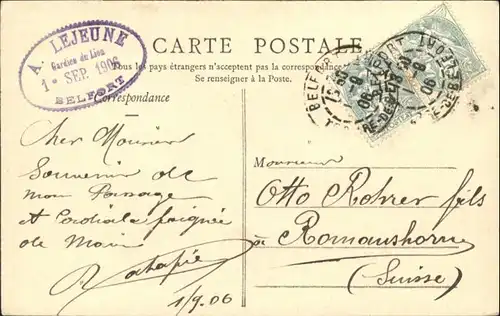 A. LEJEUNE
Gardien du Lion
1er SEP. 1906
BELFORT
CARTE POSTALE
Tous les pays étrangers n'acceptent pas la correspondance
Se renseigner à la Poste.
Correspondance
Cher Monsieur
Souvenir de
mon Passage
et Cordiale poignée
de Main
1/9.06
Monsieur
Otto Rohrer fils
à Romanshorn
(Suisse)
BELFORT